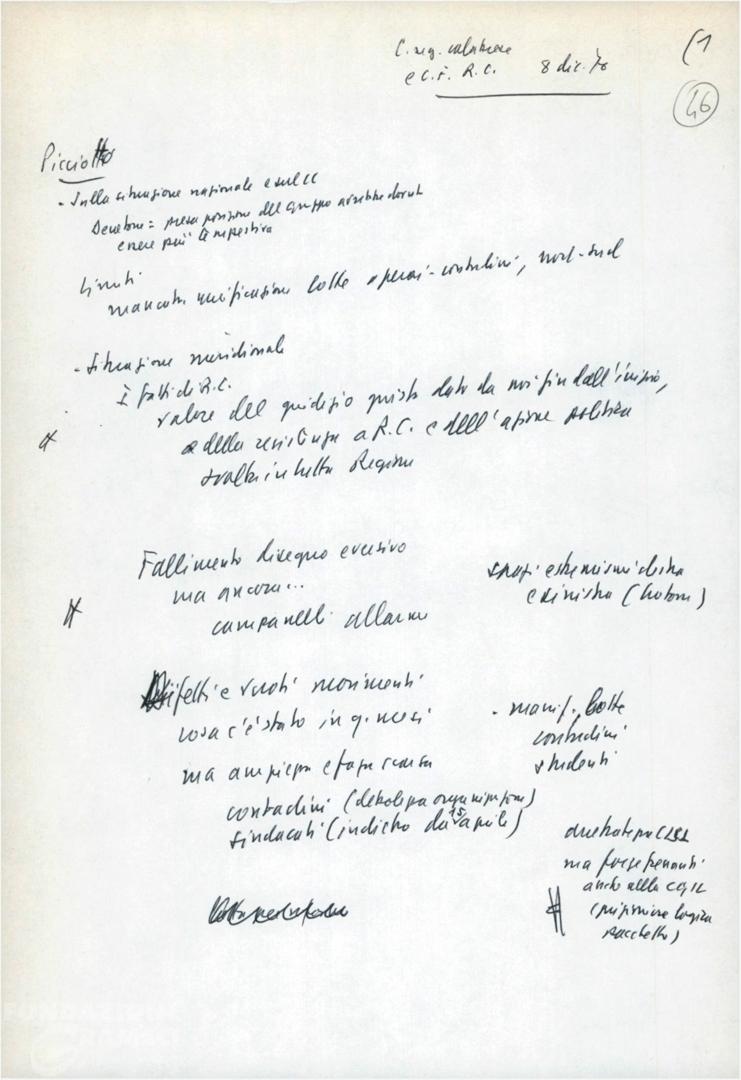 C. reg. calabrese
e C.F. R.C. 8 dic. '70
(1
46
Picciotto
- Sulla situazione nazionale e sul CC
Decretone = presa posizione del gruppo avrebbe dovuto
essere più tempestiva
Limiti
mancata unificazione lotte operai-contadini, nord-sud
- Situazione meridionale
I fatti di R.C.
valore del giudizio giusto dato da noi fin dall'inizio,
e della resistenza a R.C. e dell'azione politica
svolta in tutta Regione
Fallimento disegno eversivo
ma ancora...
campanelli allarme
spazi estremismi destra
e sinistra
Difetti e vuoti movimenti
cosa c'è stato in q. mesi
- manif. lotte
contadini
studenti
ma ampiezza e fasce scarsa
contadini (debolezza organizzazione)
sindacati (indietro da 15 aprile)
CISL
ma forze frenanti
anche nella CGIL
FONDAZIONE
GRAMSCI